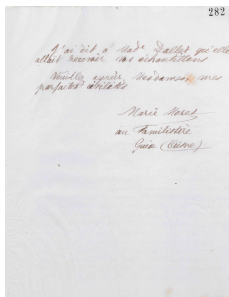 282
J'ai dit à Mad. Pallet qu'elle
allait recevoir vos échantillons
Veuillez agréer, Mesdames, mes
parfaites civilités
Marie Moret
au Familistère
Guise (Aisne)